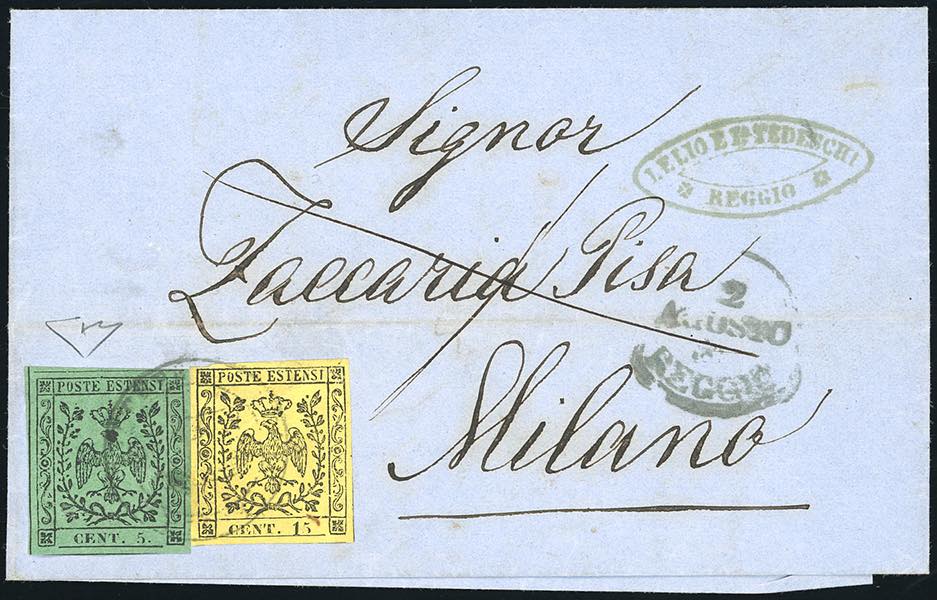 Signor
LELIO E Fo TEDESCHI
REGGIO
Zaccaria Pisa
2
AGOSTO
REGGIO
Milano
POSTE ESTENSI
CENT. 5.
POSTE ESTENSI
CENT. 15